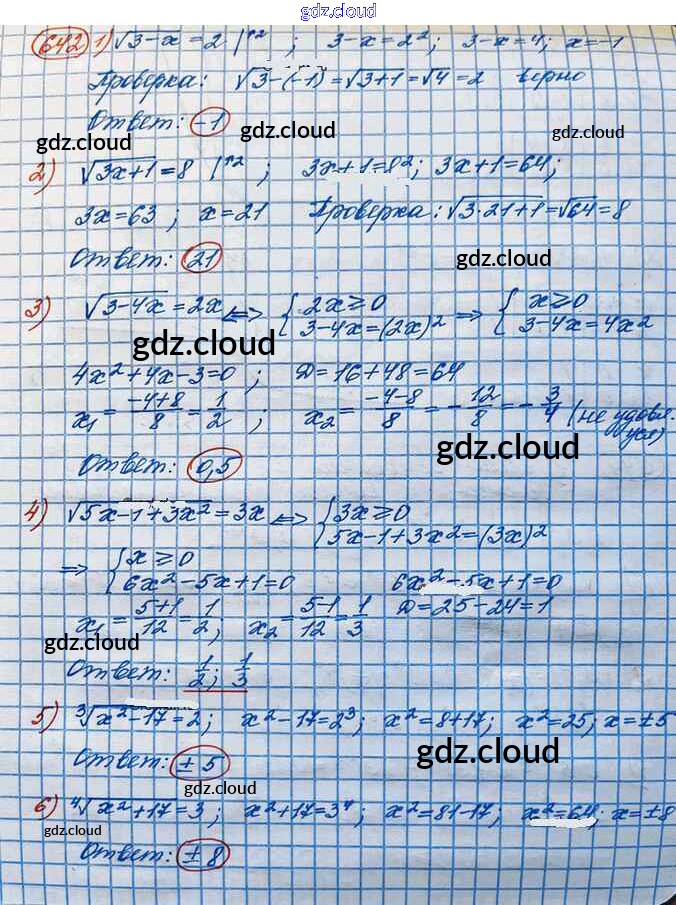 gdz.cloud
642 1) √3-x = 2 |↑2 ; 3-x=2²; 3-x=4; x=-1
Проверка: √3-(-1)=√3+1=√4=2 верно
Ответ: -1
gdz.cloud gdz.cloud gdz.cloud
2) √3x+1=8 |↑2 ; 3x+1=8²; 3x+1=64;
3x=63 ; x=21 Проверка: √3·21+1=√64=8
Ответ: 21
gdz.cloud
3) √3-4x = 2x ⇔ { 2x⩾0 3-4x=(2x)² ⇒ { x⩾0 3-4x=4x²
gdz.cloud
4x²+4x-3=0 ; D=16+48=64
x₁ = -4+8/8 = 1/2 ; x₂ = -4-8/8 = -12/8 = -3/4 (не удовл. усл)
gdz.cloud
Ответ: 0,5
4) √5x-1+3x² = 3x ⇔ { 3x⩾0 5x-1+3x²=(3x)²
⇒ { x⩾0 6x²-5x+1=0 6x²-5x+1=0
x₁ = 5+1/12 = 1/2; x₂ = 5-1/12 = 1/3 D=25-24=1
gdz.cloud gdz.cloud
Ответ: 1/2; 1/3
5) ³√x²-17=2; x²-17=2³; x²=8+17; x²=25; x=±5
gdz.cloud
Ответ: ±5
gdz.cloud
6) ⁴√x²+17=3; x²+17=3⁴; x²=81-17; x²=64; x=±8
Ответ: ±8
gdz.cloud